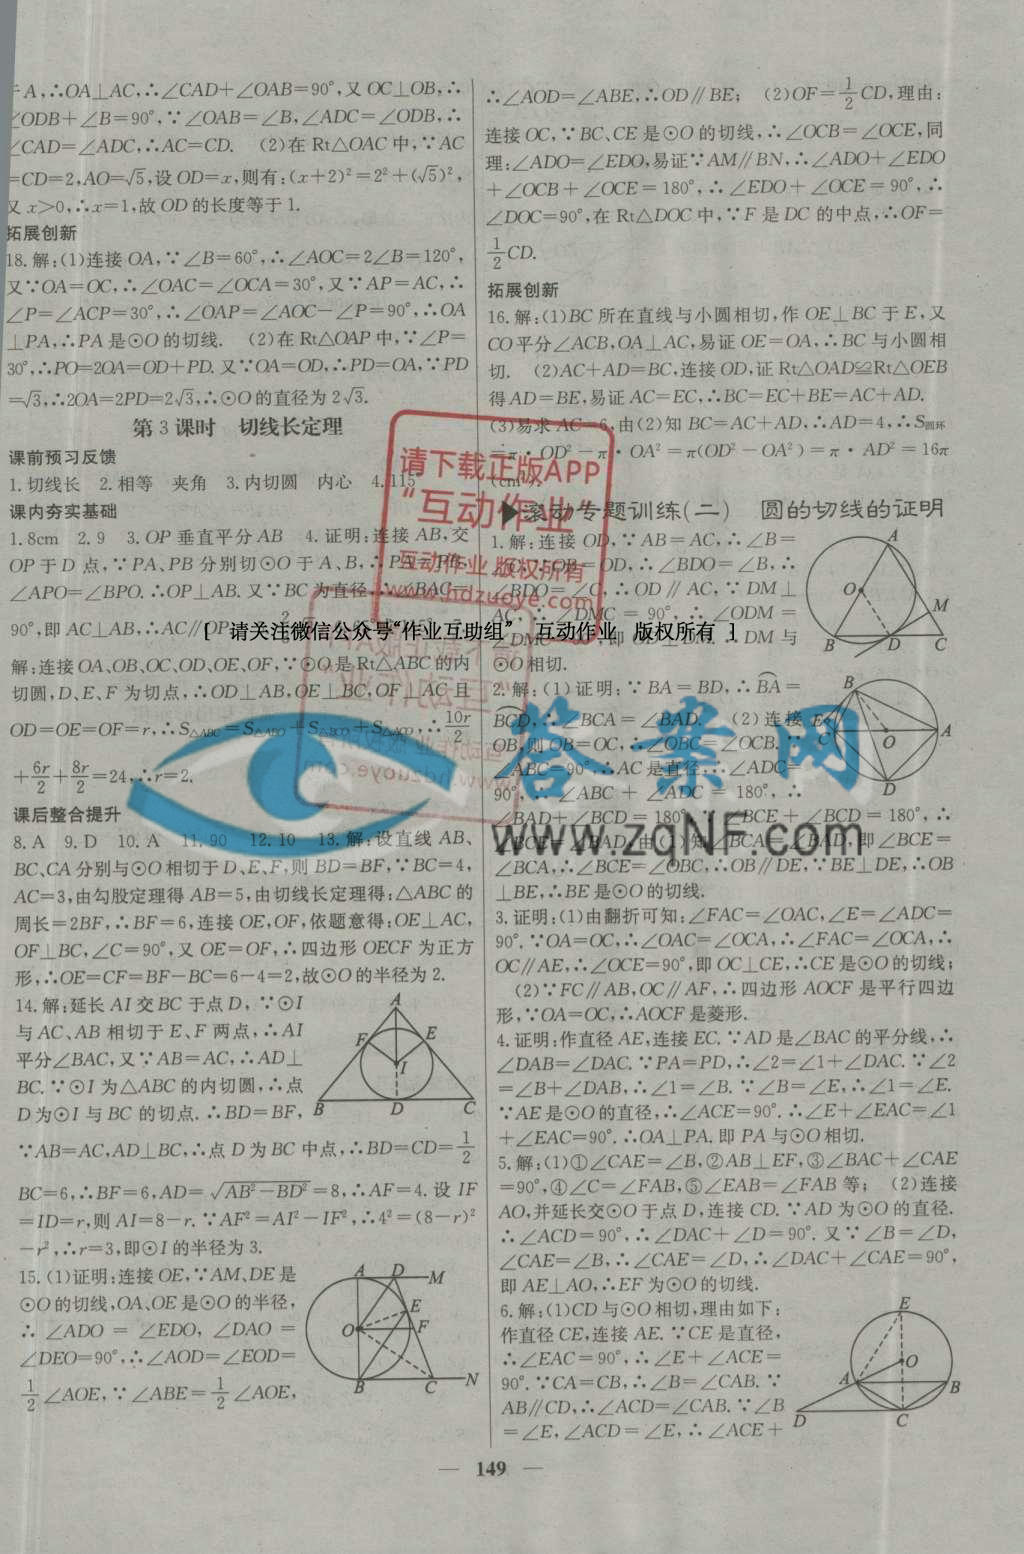 A,∴OA⊥AC,∴∠CAD+∠OAB=90°,又OC⊥OB,∴
∠ODB+∠B=90°,∵∠OAB=∠B,∠ADC=∠ODB,∴
∠CAD=∠ADC,∴AC=CD. (2)在Rt△OAC中,∵AC
=CD=2,AO=√5,设OD=x,则有:(x+2)²=2²+(√5)²,
又x>0,∴x=1,故OD的长度等于1.
拓展创新
18.解:(1)连接OA,∵∠B=60°,∴∠AOC=2∠B=120°,
又∵OA=OC,∴∠OAC=∠OCA=30°,又∵AP=AC,∴
∠P=∠ACP=30°,∴∠OAP=∠AOC-∠P=90°,∴OA
⊥PA,∴PA是⊙O的切线. (2)在Rt△OAP中,∵∠P=
30°,∴PO=2OA=OD+PD.又∵OA=OD,∴PD=OA,∵PD
=√3,∴2OA=2PD=2√3,∴⊙O的直径为2√3.
第3课时 切线长定理
课前预习反馈
1.切线长 2.相等 夹角 3.内切圆 内心 4.115°
课内夯实基础
1.8cm 2.9 3.OP垂直平分AB 4.证明:连接AB,交
OP于D点,∵PA、PB分别切⊙O于A、B,∴PA=PB
∠APO=∠BPO.∴OP⊥AB.又∵BC为直径,∴∠BAC=
90°,即AC⊥AB,∴AC∥OP.
解:连接OA、OB、OC、OD、OE、OF,∵⊙O是Rt△ABC的内
切圆,D、E、F为切点,∴OD⊥AB,OE⊥BC,OF⊥AC且
OD=OE=OF=r,∴S△ABC=S△ABO+S△BCO+S△ACO,∴10r/2
+6r/2+8r/2=24,∴r=2.
课后整合提升
8.A 9.D 10.A 11.90 12.10 13.解:设直线AB、
BC、CA分别与⊙O相切于D、E、F,则BD=BF,∵BC=4,
AC=3,由勾股定理得AB=5,由切线长定理得:△ABC的
周长=2BF,∴BF=6,连接OE,OF,依题意得:OE⊥AC,
OF⊥BC,∠C=90°,又OE=OF,∴四边形OECF为正方
形,∴OE=CF=BF-BC=6-4=2,故⊙O的半径为2.
14.解:延长AI交BC于点D,∵⊙I
与AC、AB相切于E、F两点,∴AI
平分∠BAC,又∵AB=AC,∴AD⊥
BC.∵⊙I为△ABC的内切圆,∴点
D为⊙I与BC的切点.∴BD=BF,
∵AB=AC,AD⊥BC,∴点D为BC中点,∴BD=CD=1/2
BC=6,∴BF=6,AD=√(AB²-BD²)=8,∴AF=4.设IF
=ID=r,则AI=8-r.∵AF²=AI²-IF²,∴4²=(8-r)²
-r²,∴r=3,即⊙I的半径为3.
A F E I B D C
15.(1)证明:连接OE,∵AM、DE是
⊙O的切线,OA、OE是⊙O的半径,
∴∠ADO=∠EDO,∠DAO=
∠DEO=90°,∴∠AOD=∠EOD=
1/2∠AOE,∵∠ABE=1/2∠AOE,
A D M E O F B C N
∴∠AOD=∠ABE,∴OD∥BE; (2)OF=1/2CD,理由:
连接OC,∵BC、CE是⊙O的切线,∴∠OCB=∠OCE,同
理:∠ADO=∠EDO,易证∵AM∥BN,∴∠ADO+∠EDO
+∠OCB+∠OCE=180°,∴∠EDO+∠OCE=90°,∴
∠DOC=90°,在Rt△DOC中,∵F是DC的中点,∴OF=
1/2CD.
拓展创新
16.解:(1)BC所在直线与小圆相切,作OE⊥BC于E,又
CO平分∠ACB,OA⊥AC,易证OE=OA,∴BC与小圆相
切. (2)AC+AD=BC,连接OD,证Rt△OAD≌Rt△OEB
得AD=BE,易证AC=EC,∴BC=EC+BE=AC+AD.
(3)易求AC=6,由(2)知BC=AC+AD,∴AD=4,∴S圆环
=π·OD²-π·OA²=π(OD²-OA²)=π·AD²=16π
(cm²).
滚动专题训练(二) 圆的切线的证明
1.解:连接OD,∵AB=AC,∴∠B=
∠C,∵OB=OD,∴∠BDO=∠B,∴
∠BDO=∠C,∴OD∥AC,∵DM⊥
∴∠DMC=90°,∴∠ODM=
∠DMC=90°,即OD⊥DM,∴DM与
⊙O相切.
A O M B D C
2.解:(1)证明:∵BA=BD,∴BA=
BCD,∴∠BCA=∠BAD. (2)连接
OB,则OB=OC,∴∠OBC=∠OCB.∵
∠ABC=90°,∴AC是直径,∴∠ADC=
90°,∴∠ABC+∠ADC=180°,∴
∠BAD+∠BCD=180°,∵∠BCE+∠BCD=180°,∴
∠BCE=∠BAD,由(1)知∠BCA=∠BAD,即∠BCE=
∠BCA,∴∠BCE=∠OBC,∴OB∥DE,∵BE⊥DE,∴OB
⊥BE,∴BE是⊙O的切线.
B E C O A D
3.证明:(1)由翻折可知:∠FAC=∠OAC,∠E=∠ADC=
90°.∵OA=OC,∴∠OAC=∠OCA,∴∠FAC=∠OCA,∴
OC∥AE,∴∠OCE=90°,即OC⊥CE,∴CE是⊙O的切线;
(2)∵FC∥AB,OC∥AF,∴四边形AOCF是平行四边
形,∵OA=OC,∴AOCF是菱形.
4.证明:作直径AE,连接EC.∵AD是∠BAC的平分线,∴
∠DAB=∠DAC.∵PA=PD,∴∠2=∠1+∠DAC.∵∠2
=∠B+∠DAB,∴∠1=∠B.∵∠B=∠E,∴∠1=∠E.
∵AE是⊙O的直径,∴∠ACE=90°.∴∠E+∠EAC=∠1
+∠EAC=90°.∴OA⊥PA.即PA与⊙O相切.
5.解:(1)①∠CAE=∠B,②AB⊥EF,③∠BAC+∠CAE
=90°,④∠C=∠FAB,⑤∠EAB=∠FAB等; (2)连接
AO,并延长交⊙O于点D,连接CD.∵AD为⊙O的直径.
∴∠ACD=90°,∴∠DAC+∠D=90°.又∵∠B=∠D,
∠CAE=∠B,∴∠CAE=∠D,∴∠DAC+∠CAE=90°,
即AE⊥AO,∴EF为⊙O的切线.
6.解:(1)CD与⊙O相切,理由如下:
作直径CE,连接AE.∵CE是直径,
∴∠EAC=90°,∴∠E+∠ACE=
90°.∵CA=CB,∴∠B=∠CAB.∵
AB∥CD,∴∠ACD=∠CAB.∵∠B
=∠E,∠ACD=∠E,∴∠ACE+
E O A B D C
149
请下载正版APP
“互动作业”
互动作业 版权所有
www.hdzuoye.com
[ 请关注微信公众号“作业互助组” 互动作业 版权所有 ]
答案网
www.zqNF.com